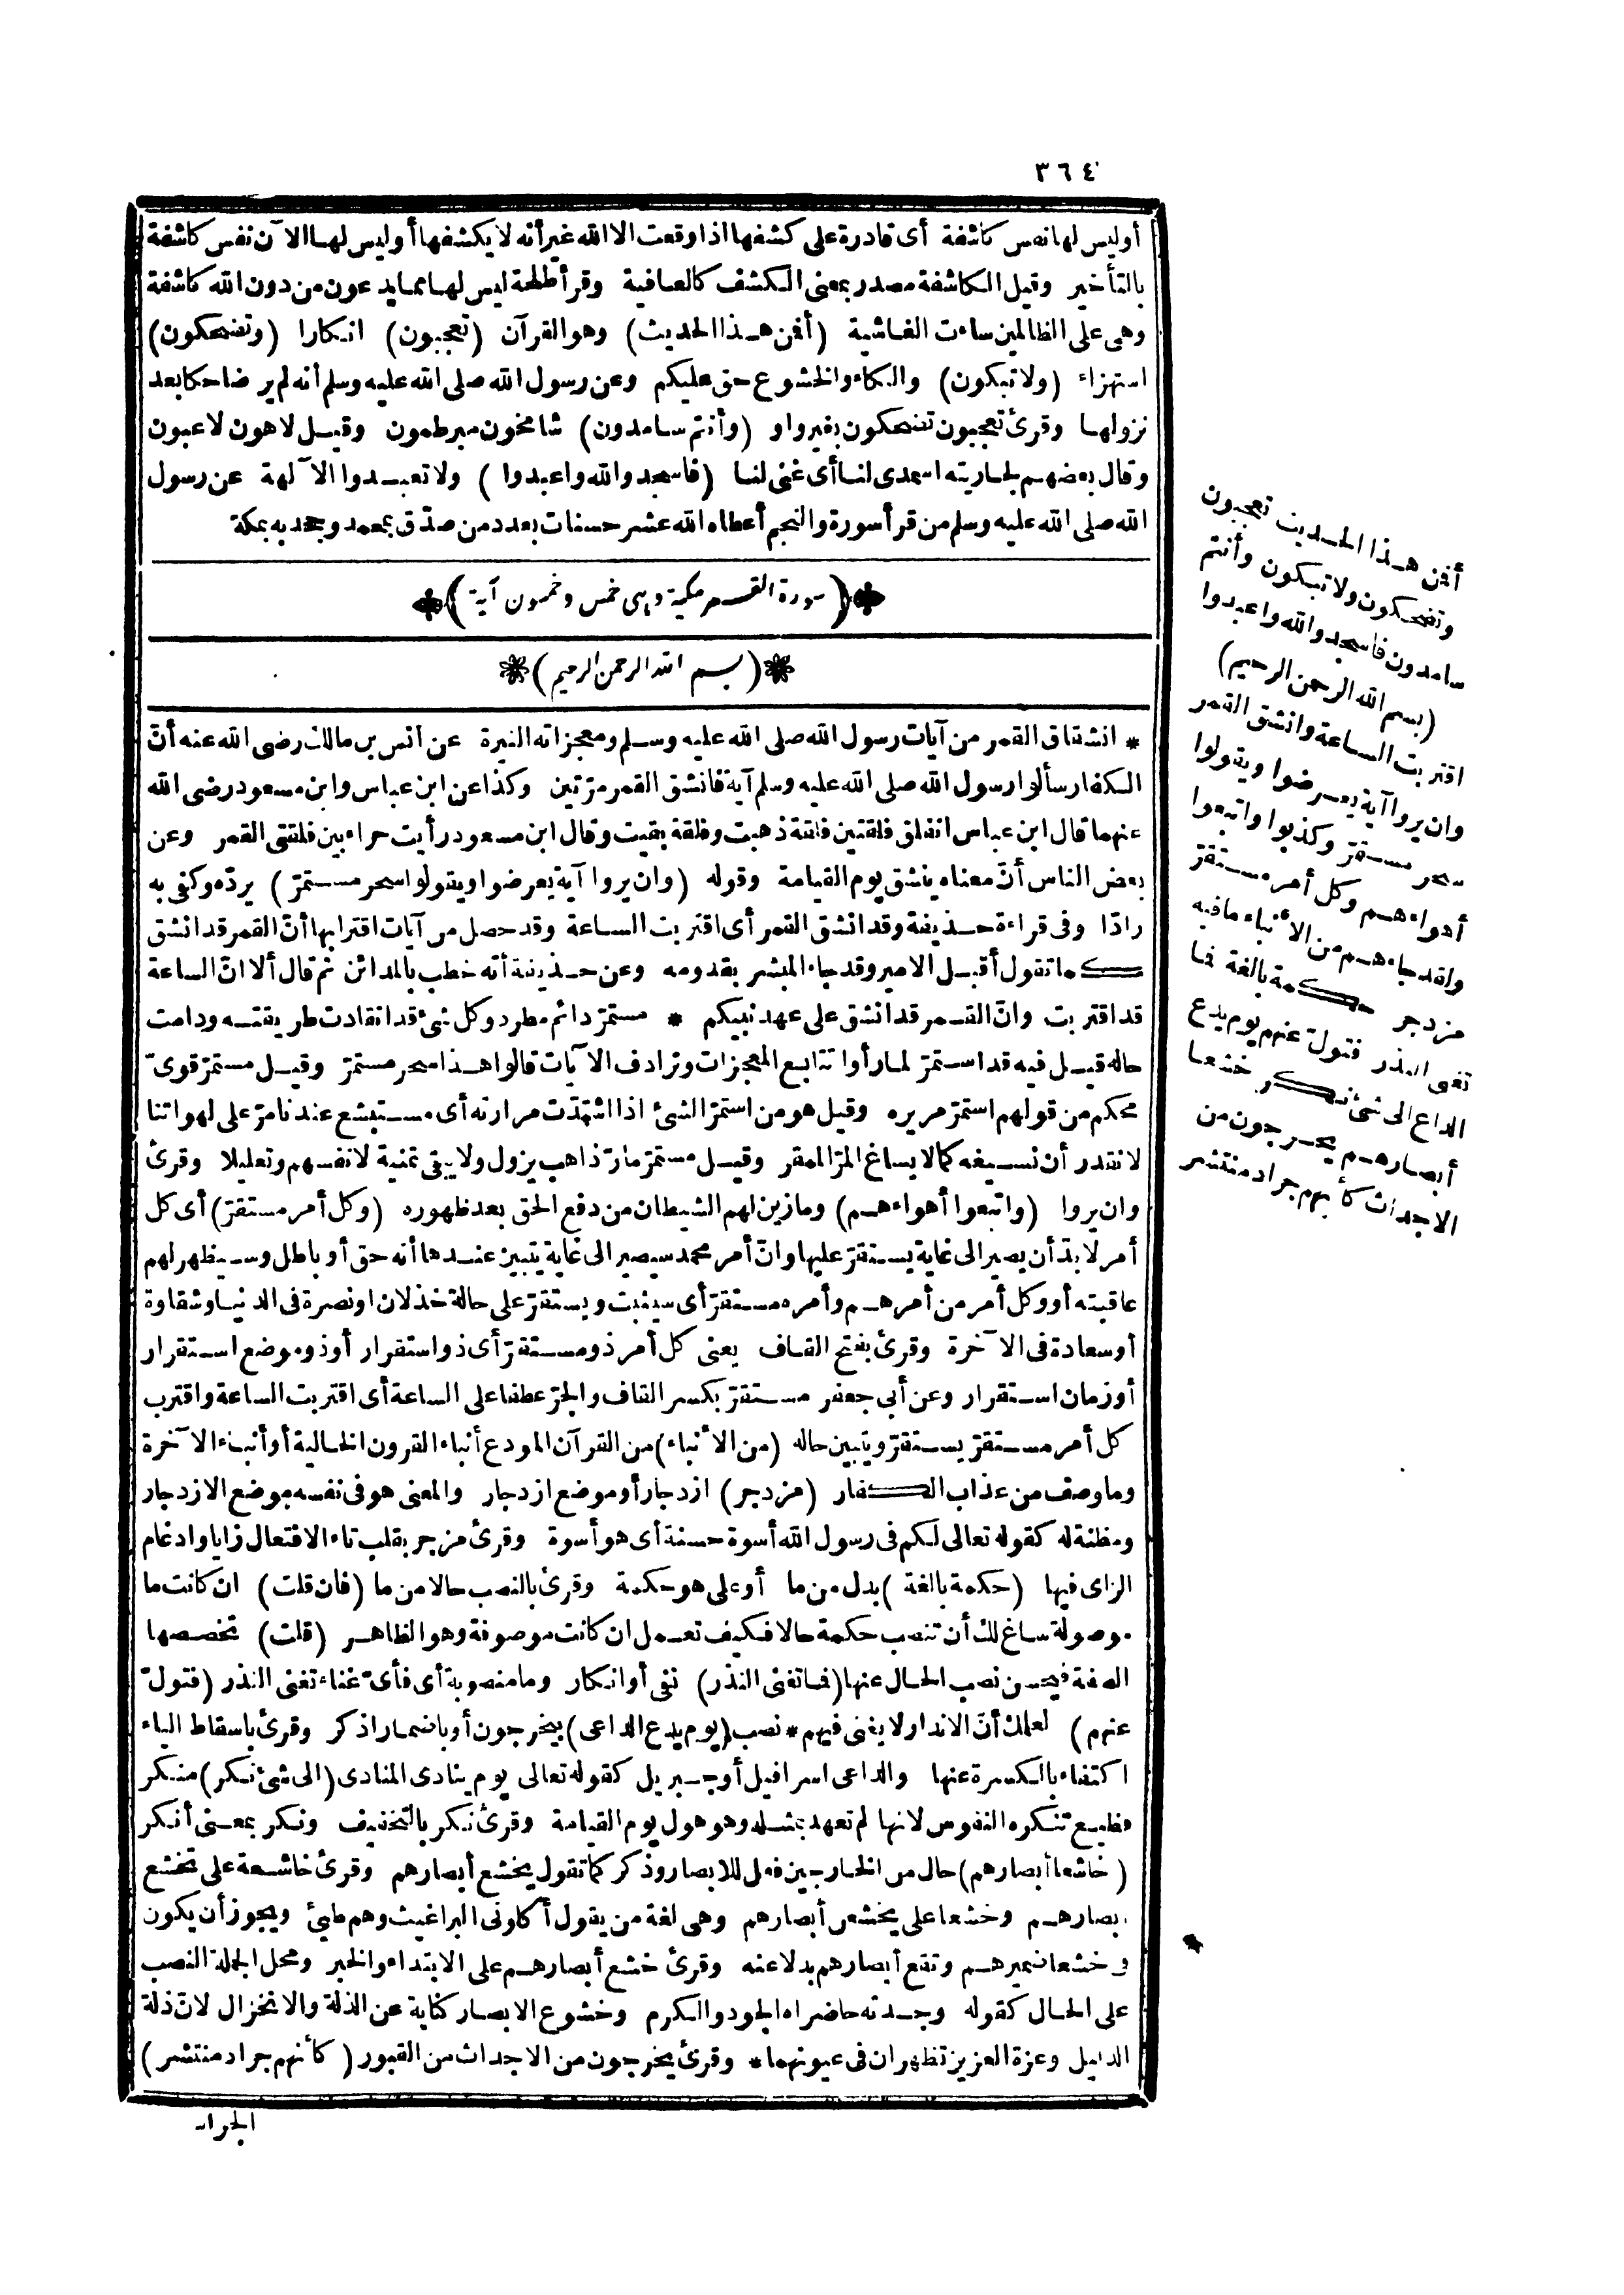 ٣٦٤
أوليس لها نفس كاشفة أى قادرة على كشفها اذا وقعت الا الله غير أنه لا يكشفها أوليس لها الآن نفس كاشفة
بالتأخير وقيل الكاشفة مصدر بمعنى الكشف كالعافية وقرأ طلحة ليس لها مما يدعون من دون الله كاشفة
وهى على الظالمين ساءت الغاشية (أفمن هذا الحديث) وهو القرآن (تعجبون) انكارا (وتضحكون)
استهزاء (ولا تبكون) والبكاء والخشوع حق عليكم وعن رسول الله صلى الله عليه وسلم أنه لم ير ضاحكا بعد
نزولها وقرئ تعجبون تضحكون بغير واو (وأنتم سامدون) شامخون مبرطمون وقيل لاهون لاعبون
وقال بعضهم لجاريته اسمدى لنا أى غنى لنا (فاسجدوا لله واعبدوا) ولا تعبدوا الآلهة عن رسول
الله صلى الله عليه وسلم من قرأ سورة والنجم أعطاه الله عشر حسنات بعدد من صدّق بمحمد وجحد به بمكة
(سورة القمر مكية وهى خمس وخمسون آية)
(بسم الله الرحمن الرحيم)
* انشقاق القمر من آيات رسول الله صلى الله عليه وسلم ومعجزاته النيرة عن أنس بن مالك رضى الله عنه أنّ
الكفار سألوا رسول الله صلى الله عليه وسلم آية فانشق القمر مرّتين وكذا عن ابن عباس وابن مسعود رضى الله
عنهما قال ابن عباس انفلق فلقتين فلقة ذهبت وفلقة بقيت وقال ابن مسعود رأيت حراء بين فلقتى القمر وعن
بعض الناس أنّ معناه ينشق يوم القيامة وقوله (وان يروا آية يعرضوا ويقولوا سحر مستمرّ) يردّه وكفى به
رادّا وفى قراءة حذيفة وقد انشق القمر أى اقتربت الساعة وقد حصل من آيات اقترابها أنّ القمر قد انشق
كما تقول أقبل الامير وقد جاء المبشر بقدومه وعن حذيفة أنه خطب بالمدائن ثم قال ألا انّ الساعة
قد اقتربت وانّ القمر قد انشق على عهد نبيكم * مستمرّ دائم مطرد وكل شئ قد انقادت طريقته ودامت
حاله قيل فيه قد استمرّ لما رأوا تتابع المعجزات وترادف الآيات قالوا هذا سحر مستمرّ وقيل مستمرّ قوىّ
محكم من قولهم استمرّ مريره وقيل هو من استمرّ الشئ اذا اشتدّت مرارته أى مستبشع عندنا مرّ على لهواتنا
لا نقدر أن نسيغه كما لا يساغ المرّ الممقر وقيل مستمرّ مارّ ذاهب يزول ولا يبقى تمنية لانفسهم وتعليلا وقرئ
وان يروا (واتبعوا أهواءهم) وما زين لهم الشيطان من دفع الحق بعد ظهوره (وكل أمر مستقرّ) أى كل
أمر لا بدّ أن يصير الى غاية يستقرّ عليها وانّ أمر محمد سيصير الى غاية يتبين عندها أنه حق أو باطل وسيظهر لهم
عاقبته أو وكل أمر من أمرهم وأمره مستقرّ أى سيثبت ويستقرّ على حالة خذلان او نصرة فى الدنيا وشقاوة
أو سعادة فى الآخرة وقرئ بفتح القاف يعنى كل أمر ذو مستقرّ أى ذو استقرار أو ذو موضع استقرار
أو زمان استقرار وعن أبى جعفر مستقرّ بكسر القاف والجرّ عطفا على الساعة أى اقتربت الساعة واقترب
كل أمر مستقرّ يستقرّ ويتبين حاله (من الأنباء) من القرآن المودع أنباء القرون الخالية أو أنباء الآخرة
وما وصف من عذاب الكفار (مزدجر) ازدجار أو موضع ازدجار والمعنى هو فى نفسه موضع الازدجار
ومظنة له كقوله تعالى لكم فى رسول الله أسوة حسنة أى هو أسوة وقرئ مزجر بقلب تاء الافتعال زايا وادغام
الزاى فيها (حكمة بالغة) بدل من ما أو على هو حكمة وقرئ بالنصب حالا من ما (فان قلت) ان كانت ما
موصولة ساغ لك أن تنصب حكمة حالا فكيف تعمل ان كانت موصوفة وهو الظاهر (قلت) تخصصها
الصفة فيحسن نصب الحال عنها (فما تغنى النذر) نفى أو انكار وما منصوبة أى فأىّ غناء تغنى النذر (فتولّ
عنهم) لعلمك أنّ الانذار لا يغنى فيهم * نصب (يوم يدع الداعى) بيخرجون أو باضمار اذكر وقرئ باسقاط الياء
اكتفاء بالكسرة عنها والداعى اسرافيل أو جبريل كقوله تعالى يوم ينادى المنادى (الى شئ نكر) منكر
فظيع تنكره النفوس لانها لم تعهد بمثله وهو هول يوم القيامة وقرئ نكر بالتخفيف ونكر بمعنى أنكر
(خاشعا أبصارهم) حال من الخارجين فعل للابصار وذكر كما تقول يخشع أبصارهم وقرئ خاشعة على تخشع
أبصارهم وخشعا على يخشعن أبصارهم وهى لغة من يقول أكلونى البراغيث وهم طيئ ويجوز أن يكون
فى خشعا ضميرهم وتقع أبصارهم بدلا عنه وقرئ خشع أبصارهم على الابتداء والخبر ومحل الجملة النصب
على الحال كقوله وجدته حاضراه الجود والكرم وخشوع الابصار كناية عن الذلة والانخزال لانّ ذلة
الذليل وعزة العزيز تظهران فى عيونهما * وقرئ يخرجون من الاجداث من القبور (كأنهم جراد منتشر)
الجراد
أفمن هذا الحديث تعجبون
وتضحكون ولا تبكون وأنتم
سامدون فاسجدوا لله واعبدوا
(بسم الله الرحمن الرحيم)
اقتربت الساعة وانشق القمر
وان يروا آية يعرضوا ويقولوا
سحر مستمرّ وكذبوا واتبعوا
أهواءهم وكل أمر مستقرّ
ولقد جاءهم من الأنباء ما فيه
مزدجر حكمة بالغة فما
تغنى النذر فتولّ عنهم يوم يدع
الداع الى شئ نكر خشعا
أبصارهم يخرجون من
الاجداث كأنهم جراد منتشر